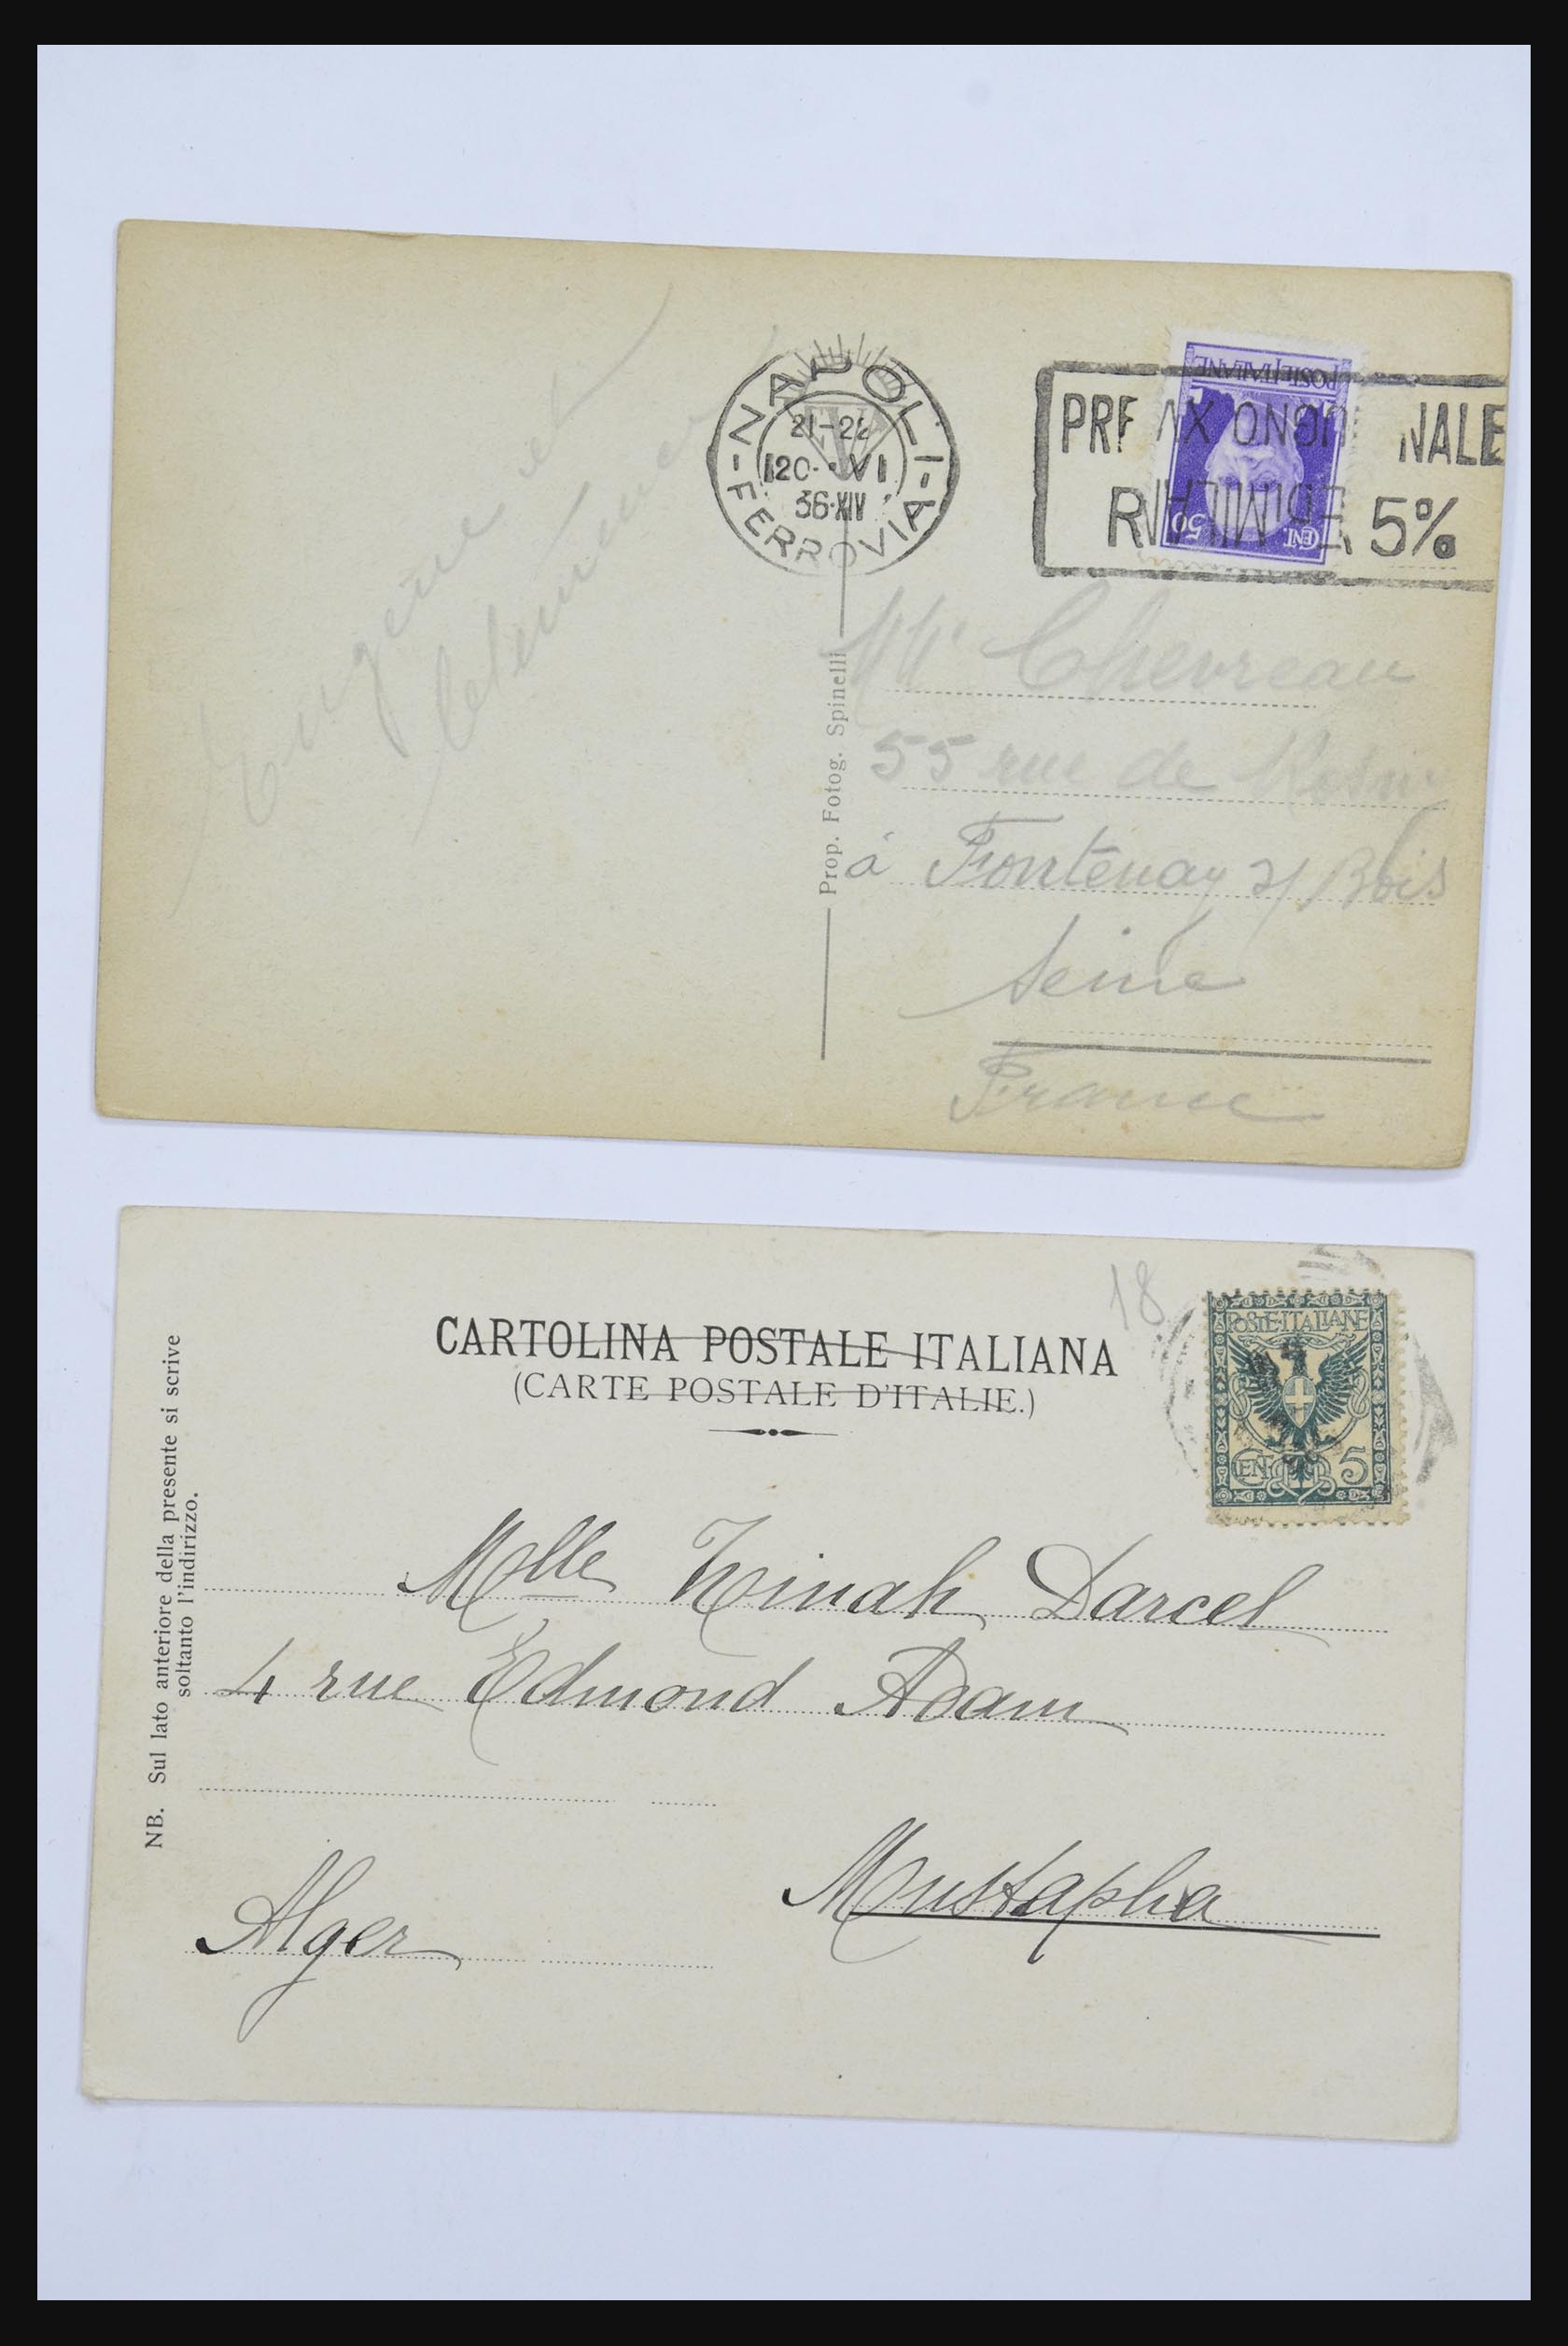 Eugene et
Clemence
NAPOLI-
21-22
120· VI
36·XIV
-FERROVIA-
POSTE ITALIANE
CENT. 50
5%
Prop. Fotog. Spinelli
Mr Chevreau
55 rue de
à Fontenay s/ Bois
Seine
France
18
CARTOLINA POSTALE ITALIANA
(CARTE POSTALE D'ITALIE.)
POSTE·ITALIANE
CEN 5
NB. Sul lato anteriore della presente si scrive
soltanto l'indirizzo.
Melle Ninah Darcel
4 rue Edmond Adam
Mustapha
Alger